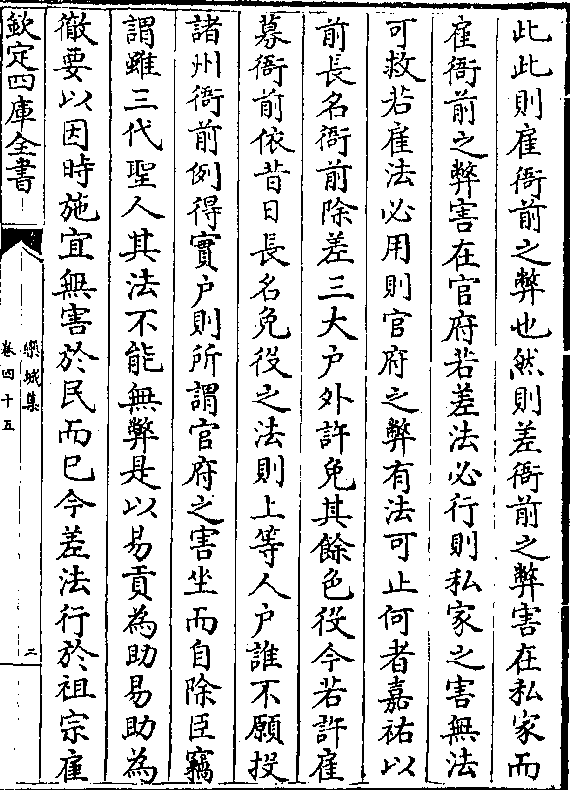 此此則雇衙前之弊也然則差衙前之弊害在私家而
雇衙前之弊害在官府若差法必行則私家之害無法
可救若雇法必用則官府之弊有法可止何者嘉祐以
前長名衙前除差三大户外許免其餘色役今若許雇
募衙前依昔日長名免役之法則上等人户誰不願投
諸州衙前例得實户則所謂官府之害坐而自除臣竊
謂雖三代聖人其法不能無弊是以易貢為助易助為
徹要以因時施宜無害於民而已今差法行於祖宗雇
欽定四庫全書
欒城集
卷四十五
三